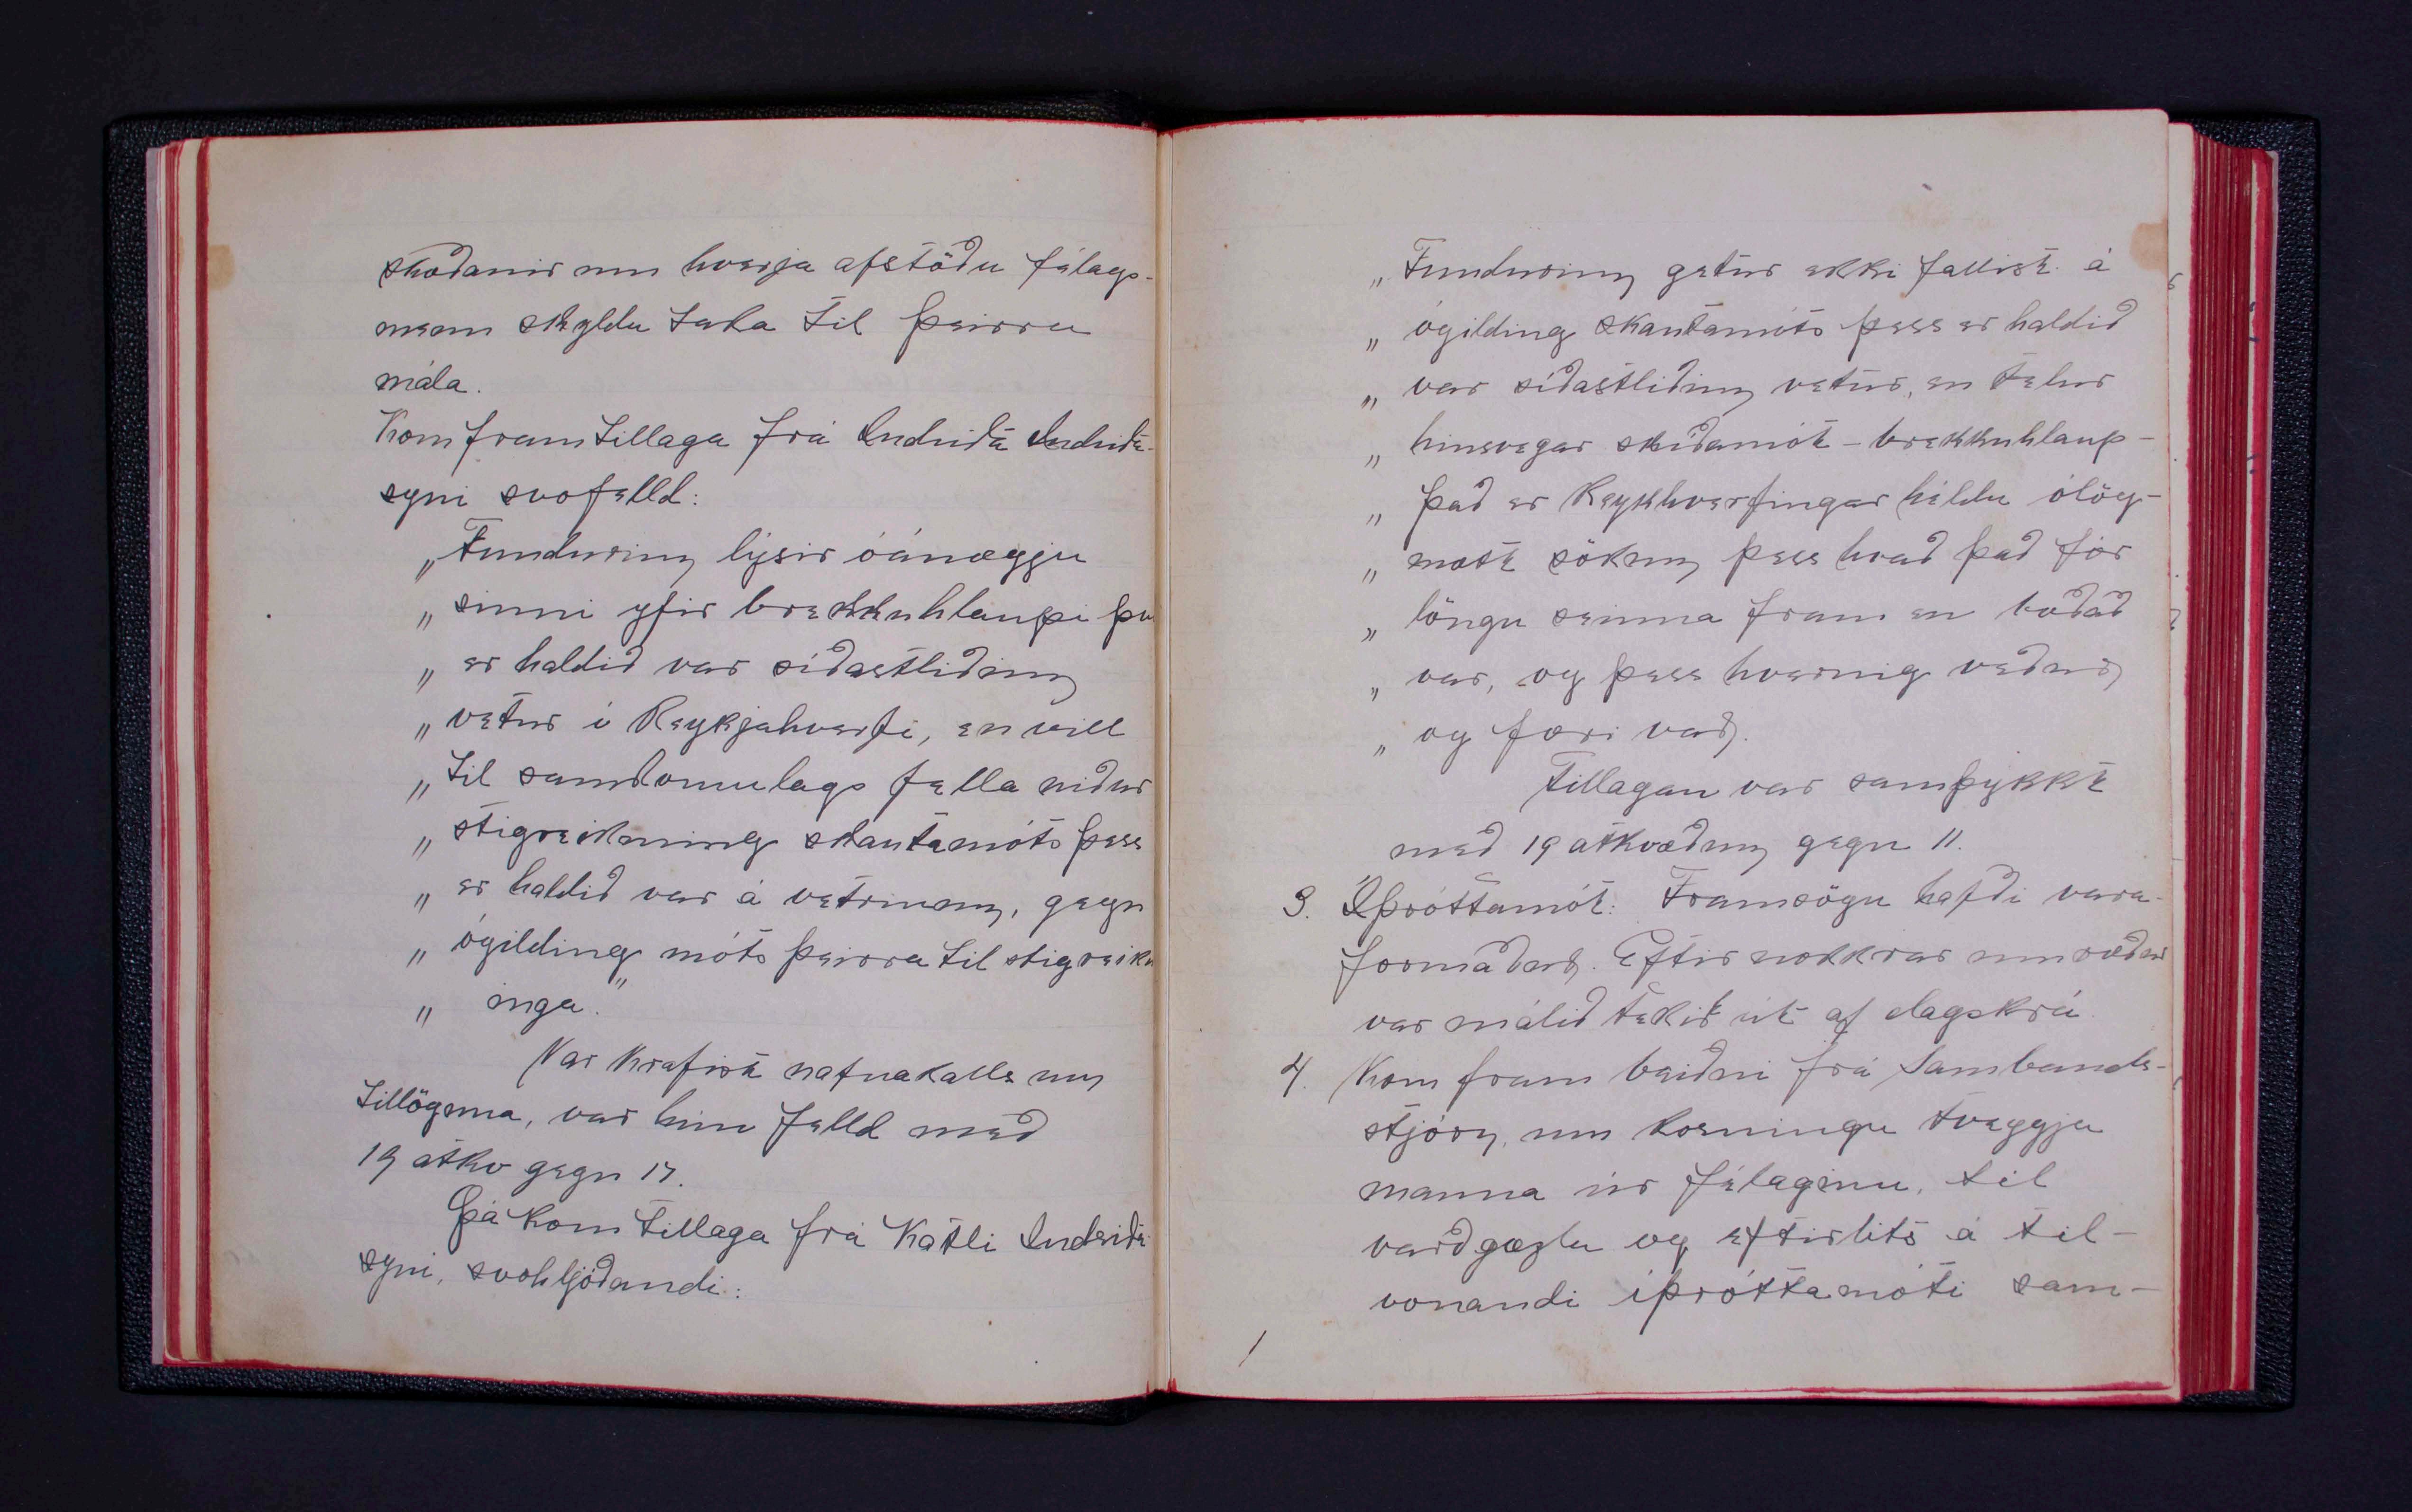 skoðanir um hverja afstöðu félags-
menn skyldu taka til þeirra
mála.
Kom fram tillaga frá Indriða Indriða-
syni svofelld:
„Fundurinn lýsir óánægju
„ sinni yfir brekkuhlaupi því
„ er haldið var síðastliðinn
„ vetur í Reykjahverfi, en vill
„ til samkomulags fella niður
„ stigreikning skautamóts þess
„ er haldið var á vetrinum, gegn
„ ógilding móts þeirra til stigreikn
„ inga."
Var krafist nafnakalls um
tillöguna, var hún felld með
19 atkv gegn 17.
Þá kom tillaga frá Katli Indriða
syni, svohljóðandi:
„Fundurinn getur ekki fallist á
„ ógilding skautamóts þess er haldið
„ var síðastliðinn vetur, en telur
„ hinsvegar skíðamót - brekkuhlaup -
„ það er Reykhverfingar héldu ólög-
„ mætt sökum þess hvað það fór
„ löngu seinna fram en boðað
„ var, og þess hvernig veður
„ og færi var.
Tillagan var samþykkt
með 19 atkvæðum gegn 11.
3. Íþróttamót: Framsögu hafði vara-
formaður. Eftir nokkrar umræður
var málið tekið út af dagskrá
4. Kom fram beiðni frá Sambands-
stjórn, um kosningu tveggja
manna úr félaginu, til
varðgæzlu og eftirlits á til-
vonandi íþróttamóti sam-